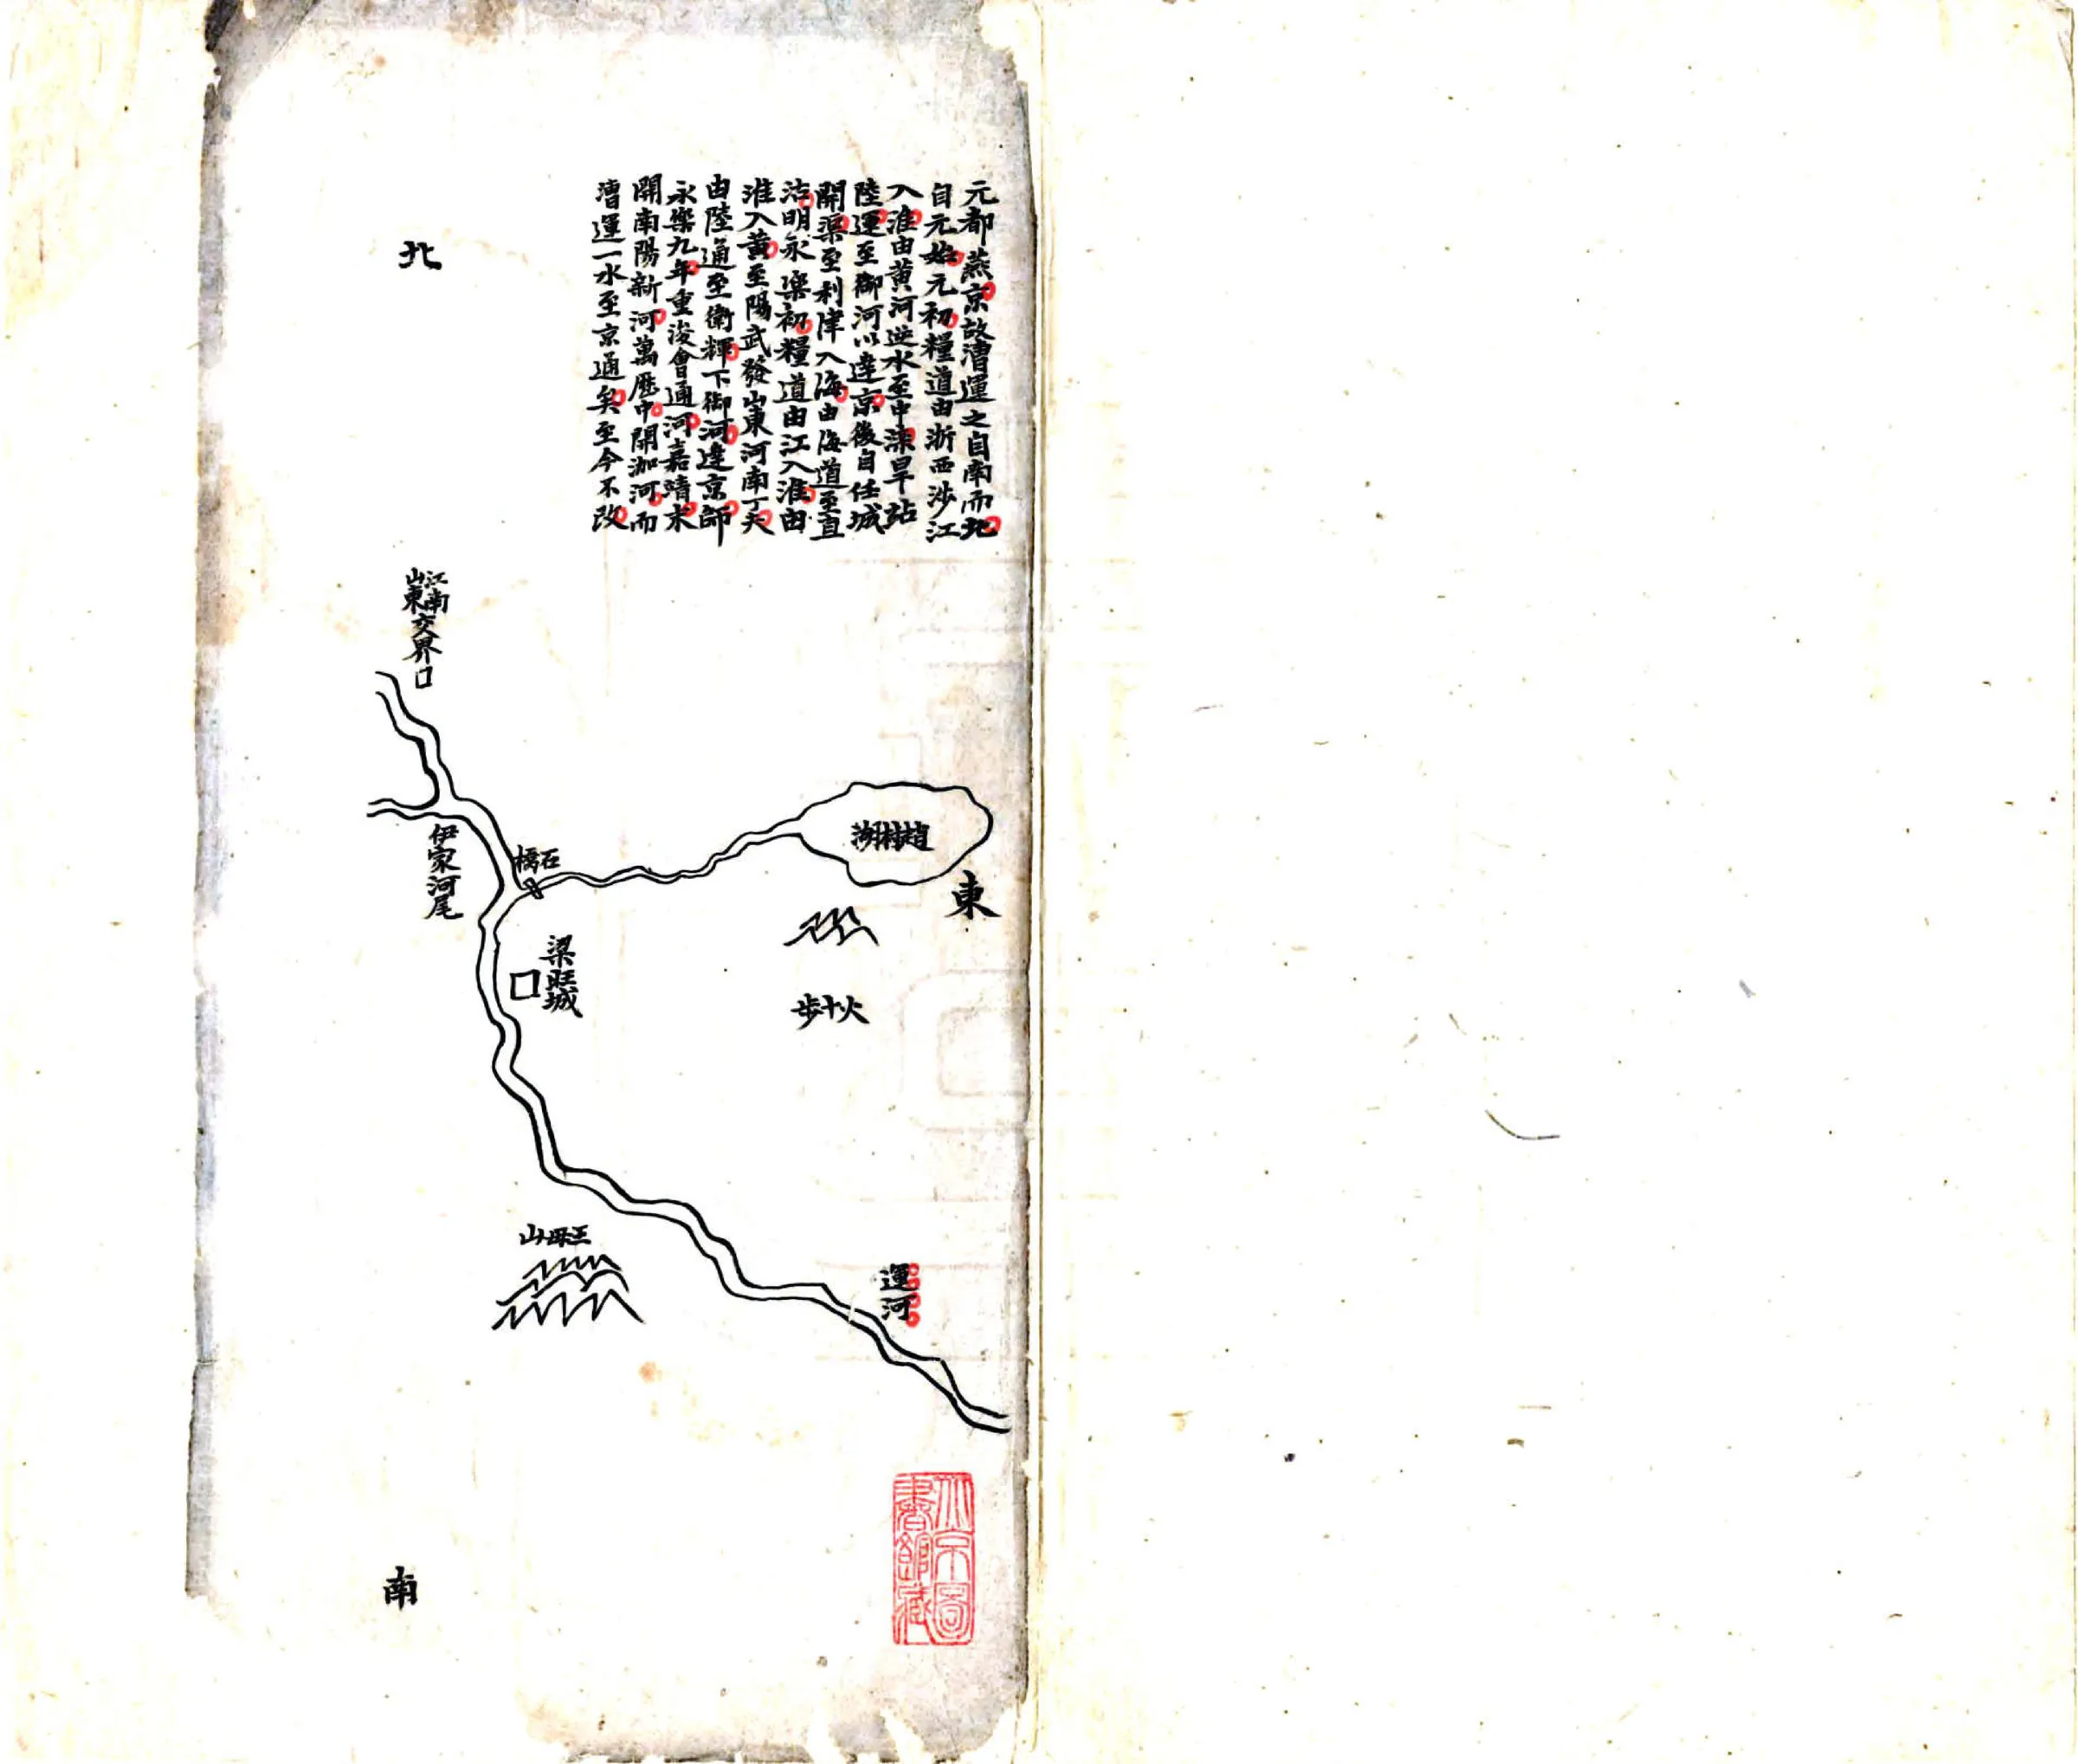 元都燕京故漕運之自南而北
自元始元初糧道由浙西涉江
入淮由黄河逆水至中灤旱站
陸運至御河以達京後自任城
開渠至利津入海由海道至直
沽明永樂初糧道由江入淮由
淮入黄至陽武發山東河南丁夫
由陸通至衛輝下御河達京師
永樂九年重浚會通河嘉晴末
開南陽新河萬歷中開泇河而
漕運一水至京通矣至今不改
北
江南
山東
交界
趙村湖
石橋
伊家河尾
東
梁旺城
火十步
王母山
運河
北京圖
書館藏
南